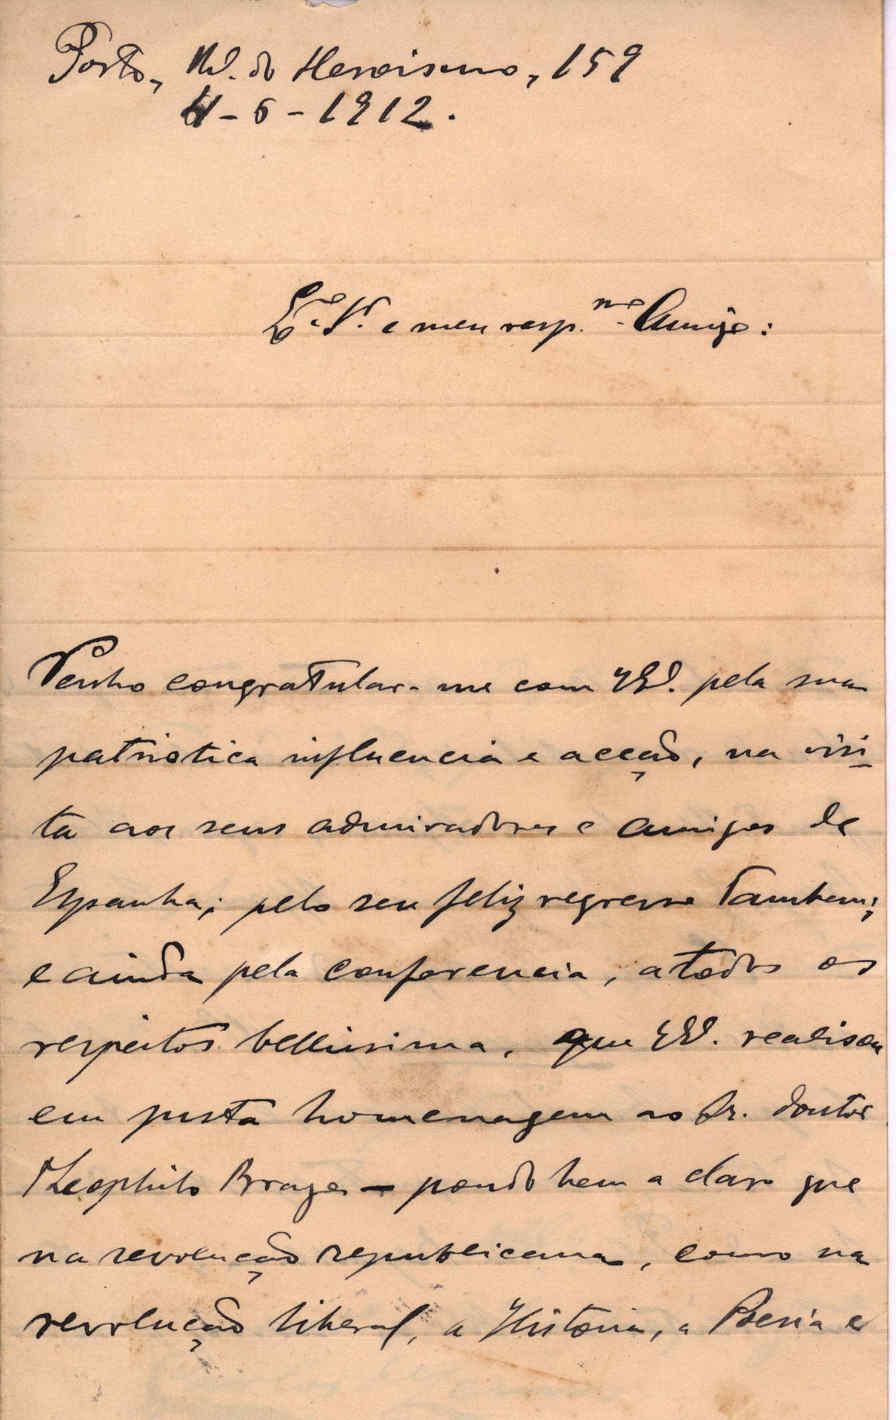 Porto, R. do Heroismo, 159
4-6-1912.
Ex.mo Sr. e meu resp.mo Amigo:
Venho congratular-me com V. Ex.ª pela sua
patriotica influencia e acção, na visi-
ta aos seus admiradores e amigos de
Espanha; pelo seu feliz regresso tambem;
e ainda pela conferencia, a todos os
respeitos bellissima, que V. Ex.ª realisou
em justa homenagem ao Sr. doutor
Theophilo Braga — pondo bem a claro que
na revolução republicana, como na
revolução liberal, a Historia, a Poesia e